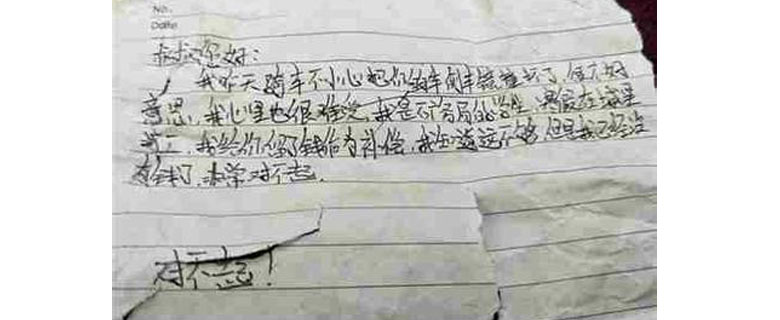 No.
Date
叔叔您好:
我昨天骑车不小心把你的车倒车镜撞坏了,很不好
意思,我心里也很难受,我是不富裕的学生,寒假在这里
打工,我给你留了钱作为补偿,我知道还不够,但是我已经没
有钱了,非常对不起。
对不起!